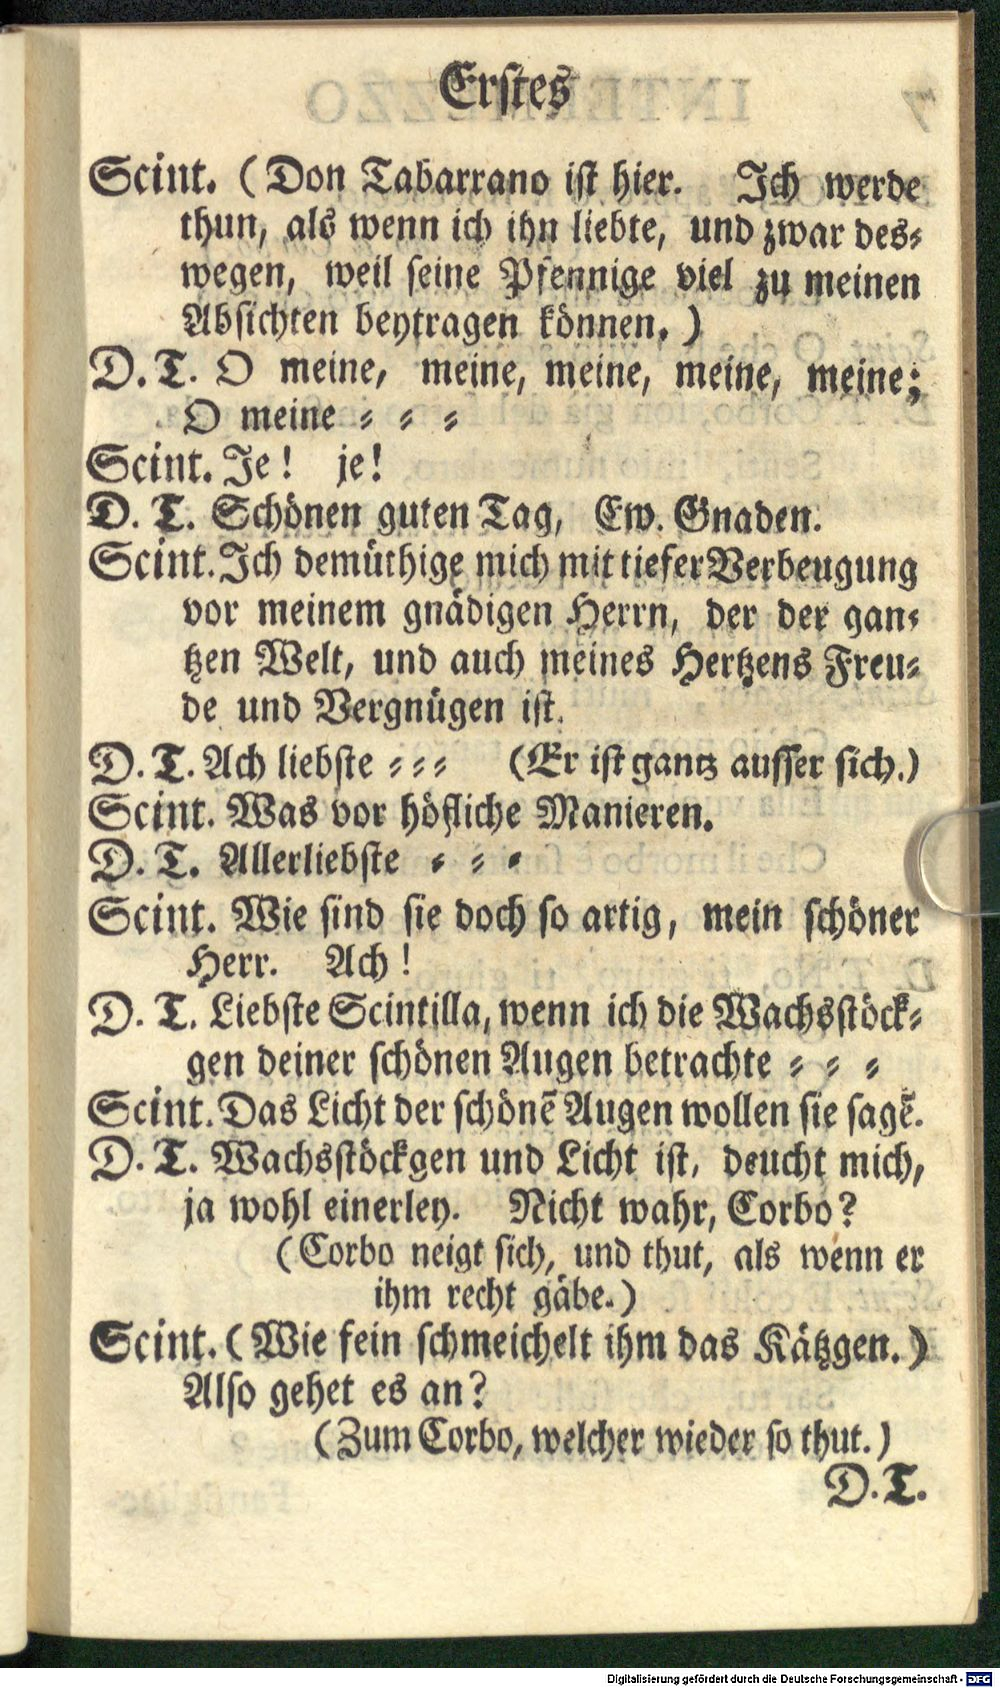 Erstes
Scint. (Don Tabarrano ist hier. Ich werde
thun, als wenn ich ihn liebte, und zwar des⸗
wegen, weil seine Pfennige viel zu meinen
Absichten beytragen können.)
D. T. O meine, meine, meine, meine, meine;
O meine ⸗ ⸗ ⸗
Scint. Je! je!
D. T. Schönen guten Tag, Ew. Gnaden.
Scint. Ich demüthige mich mit tiefer Verbeugung
vor meinem gnädigen Herrn, der der gan⸗
tzen Welt, und auch meines Hertzens Freu⸗
de und Vergnügen ist.
D. T. Ach liebste ⸗ ⸗ ⸗ (Er ist gantz ausser sich.)
Scint. Was vor höfliche Manieren.
D. T. Allerliebste ⸗ ⸗ ⸗
Scint. Wie sind sie doch so artig, mein schöner
Herr. Ach!
D. T. Liebste Scintilla, wenn ich die Wachsstöck⸗
gen deiner schönen Augen betrachte ⸗ ⸗ ⸗
Scint. Das Licht der schönē Augen wollen sie sagē.
D. T. Wachsstöckgen und Licht ist, deucht mich,
ja wohl einerley. Nicht wahr, Corbo?
(Corbo neigt sich, und thut, als wenn er
ihm recht gäbe.)
Scint. (Wie fein schmeichelt ihm das Kätzgen.)
Also gehet es an?
(Zum Corbo, welcher wieder so thut.)
D. T.
Digitalisierung gefördert durch die Deutsche Forschungsgemeinschaft - DFG